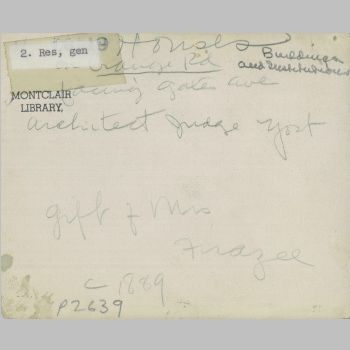 2. Res, gen
Houses
Buildings
and Institutions
Orange Rd
facing Gates Ave
MONTCLAIR
LIBRARY,
Architect Judge Yost
Gift of Mrs
Frazee
C 1889
P2639